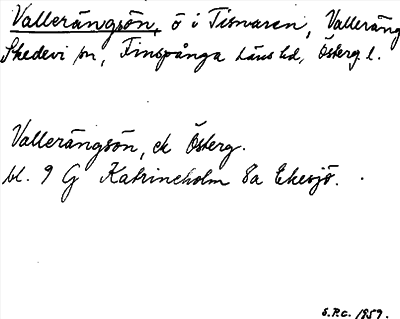 Vallerängsön, ö i Tisnaren, Valleräng
Skedevi sn, Finspånga läns hd, Österg. l.
Vallerängsön, ek Österg.
bl. 9 G Katrineholm 8a Ekesjö.
S.P.C. 1959.